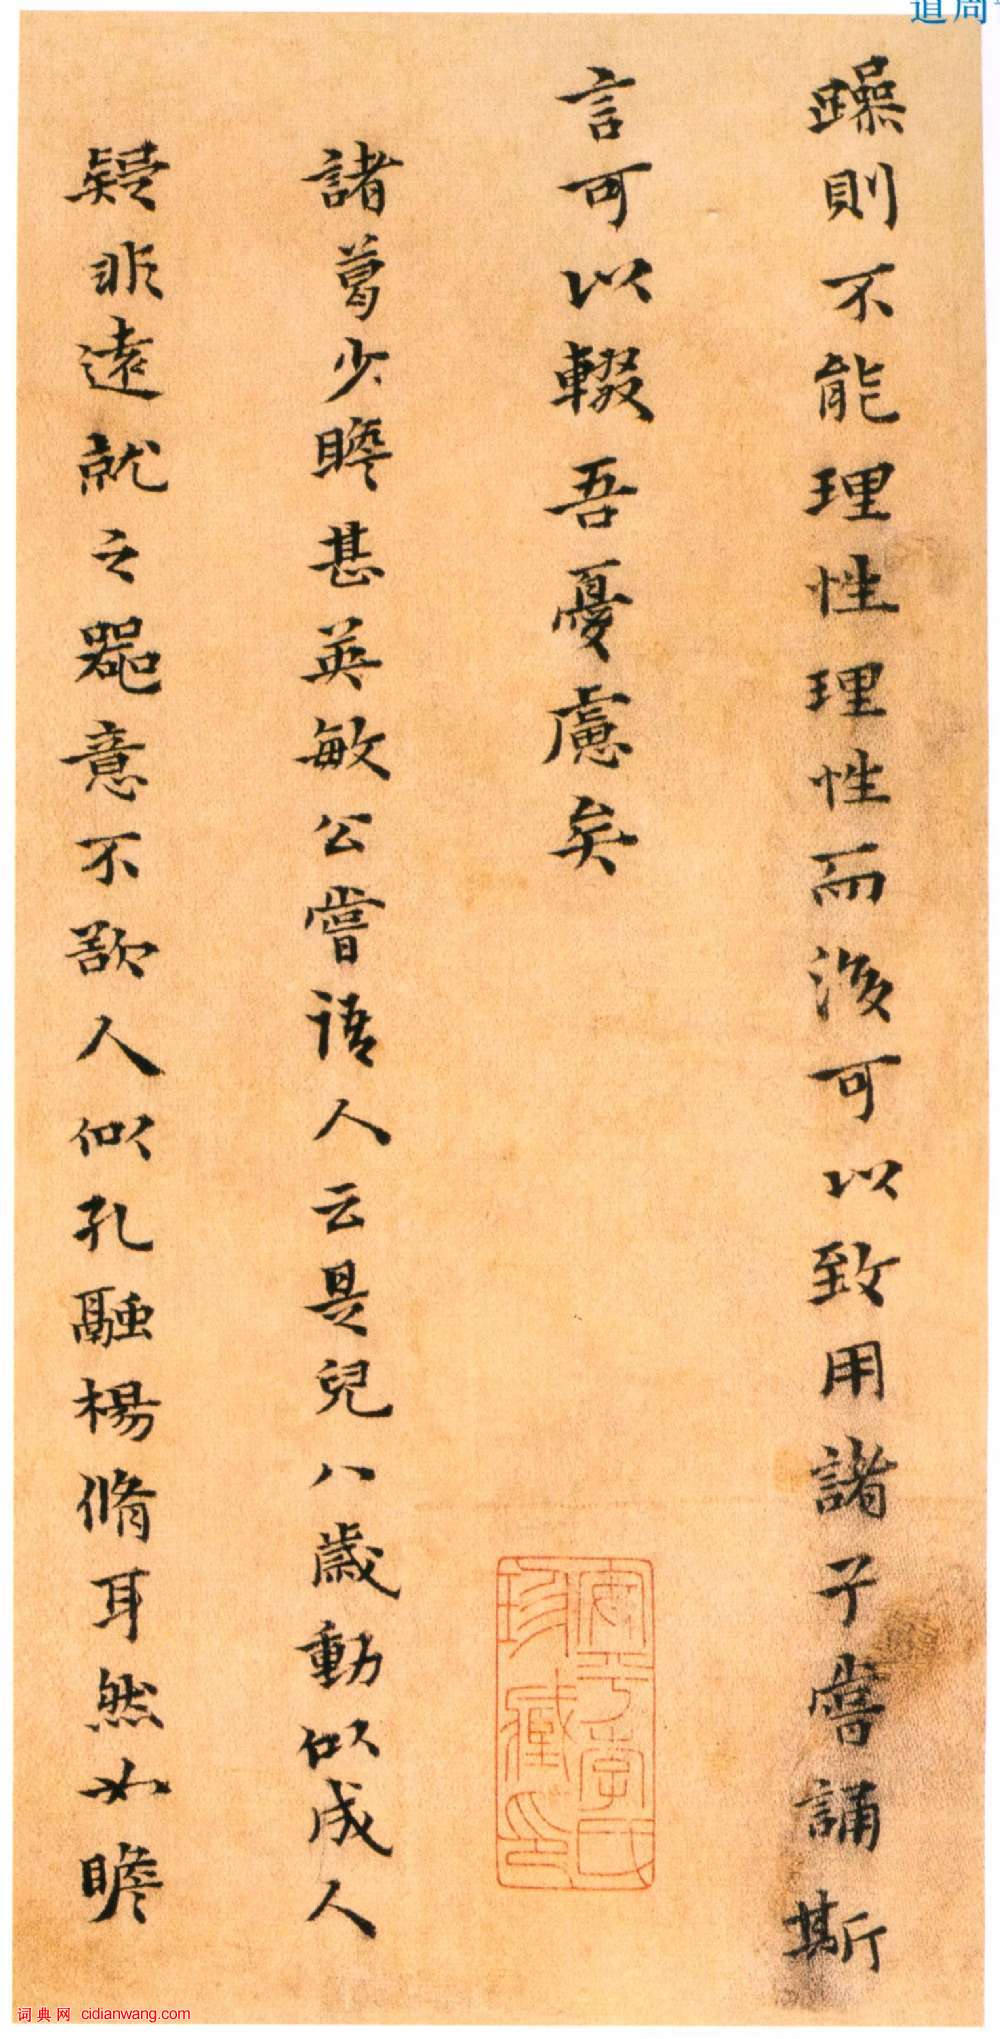 道周
躁則不能理性理性而後可以致用諸子嘗誦斯
言可以輟吾憂慮矣
諸葛少瞻甚英敏公嘗語人云是兒八歲動似成人
疑非遠就之器意不欲人似孔融楊脩耳然如瞻
安平李氏
珍藏印
词典网 cidianwang.com